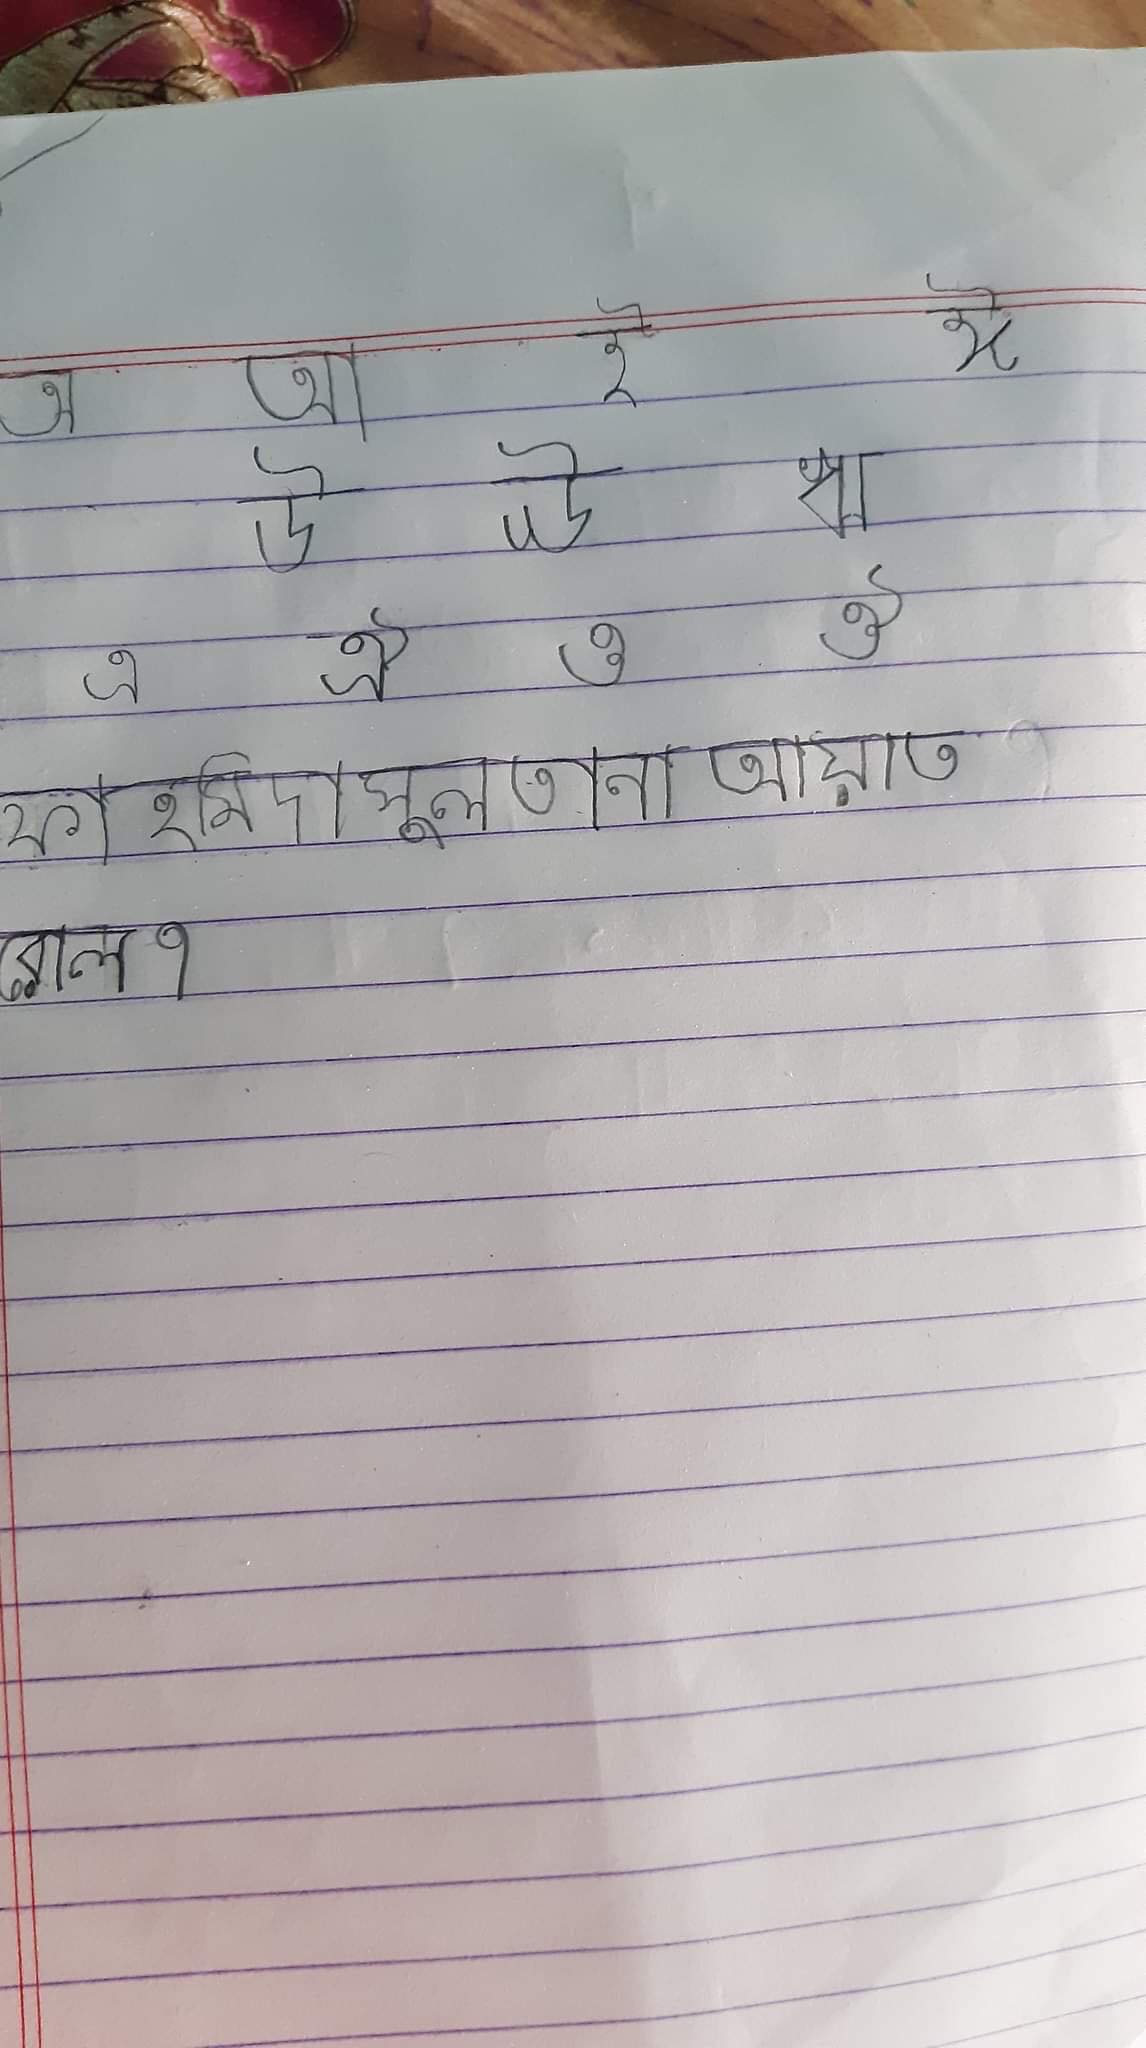 অ আ ই ঈ
উ ঊ ঋ
এ ঐ ও ঔ
ফাহমিদা সুলতানা আয়াত
রোল ৭